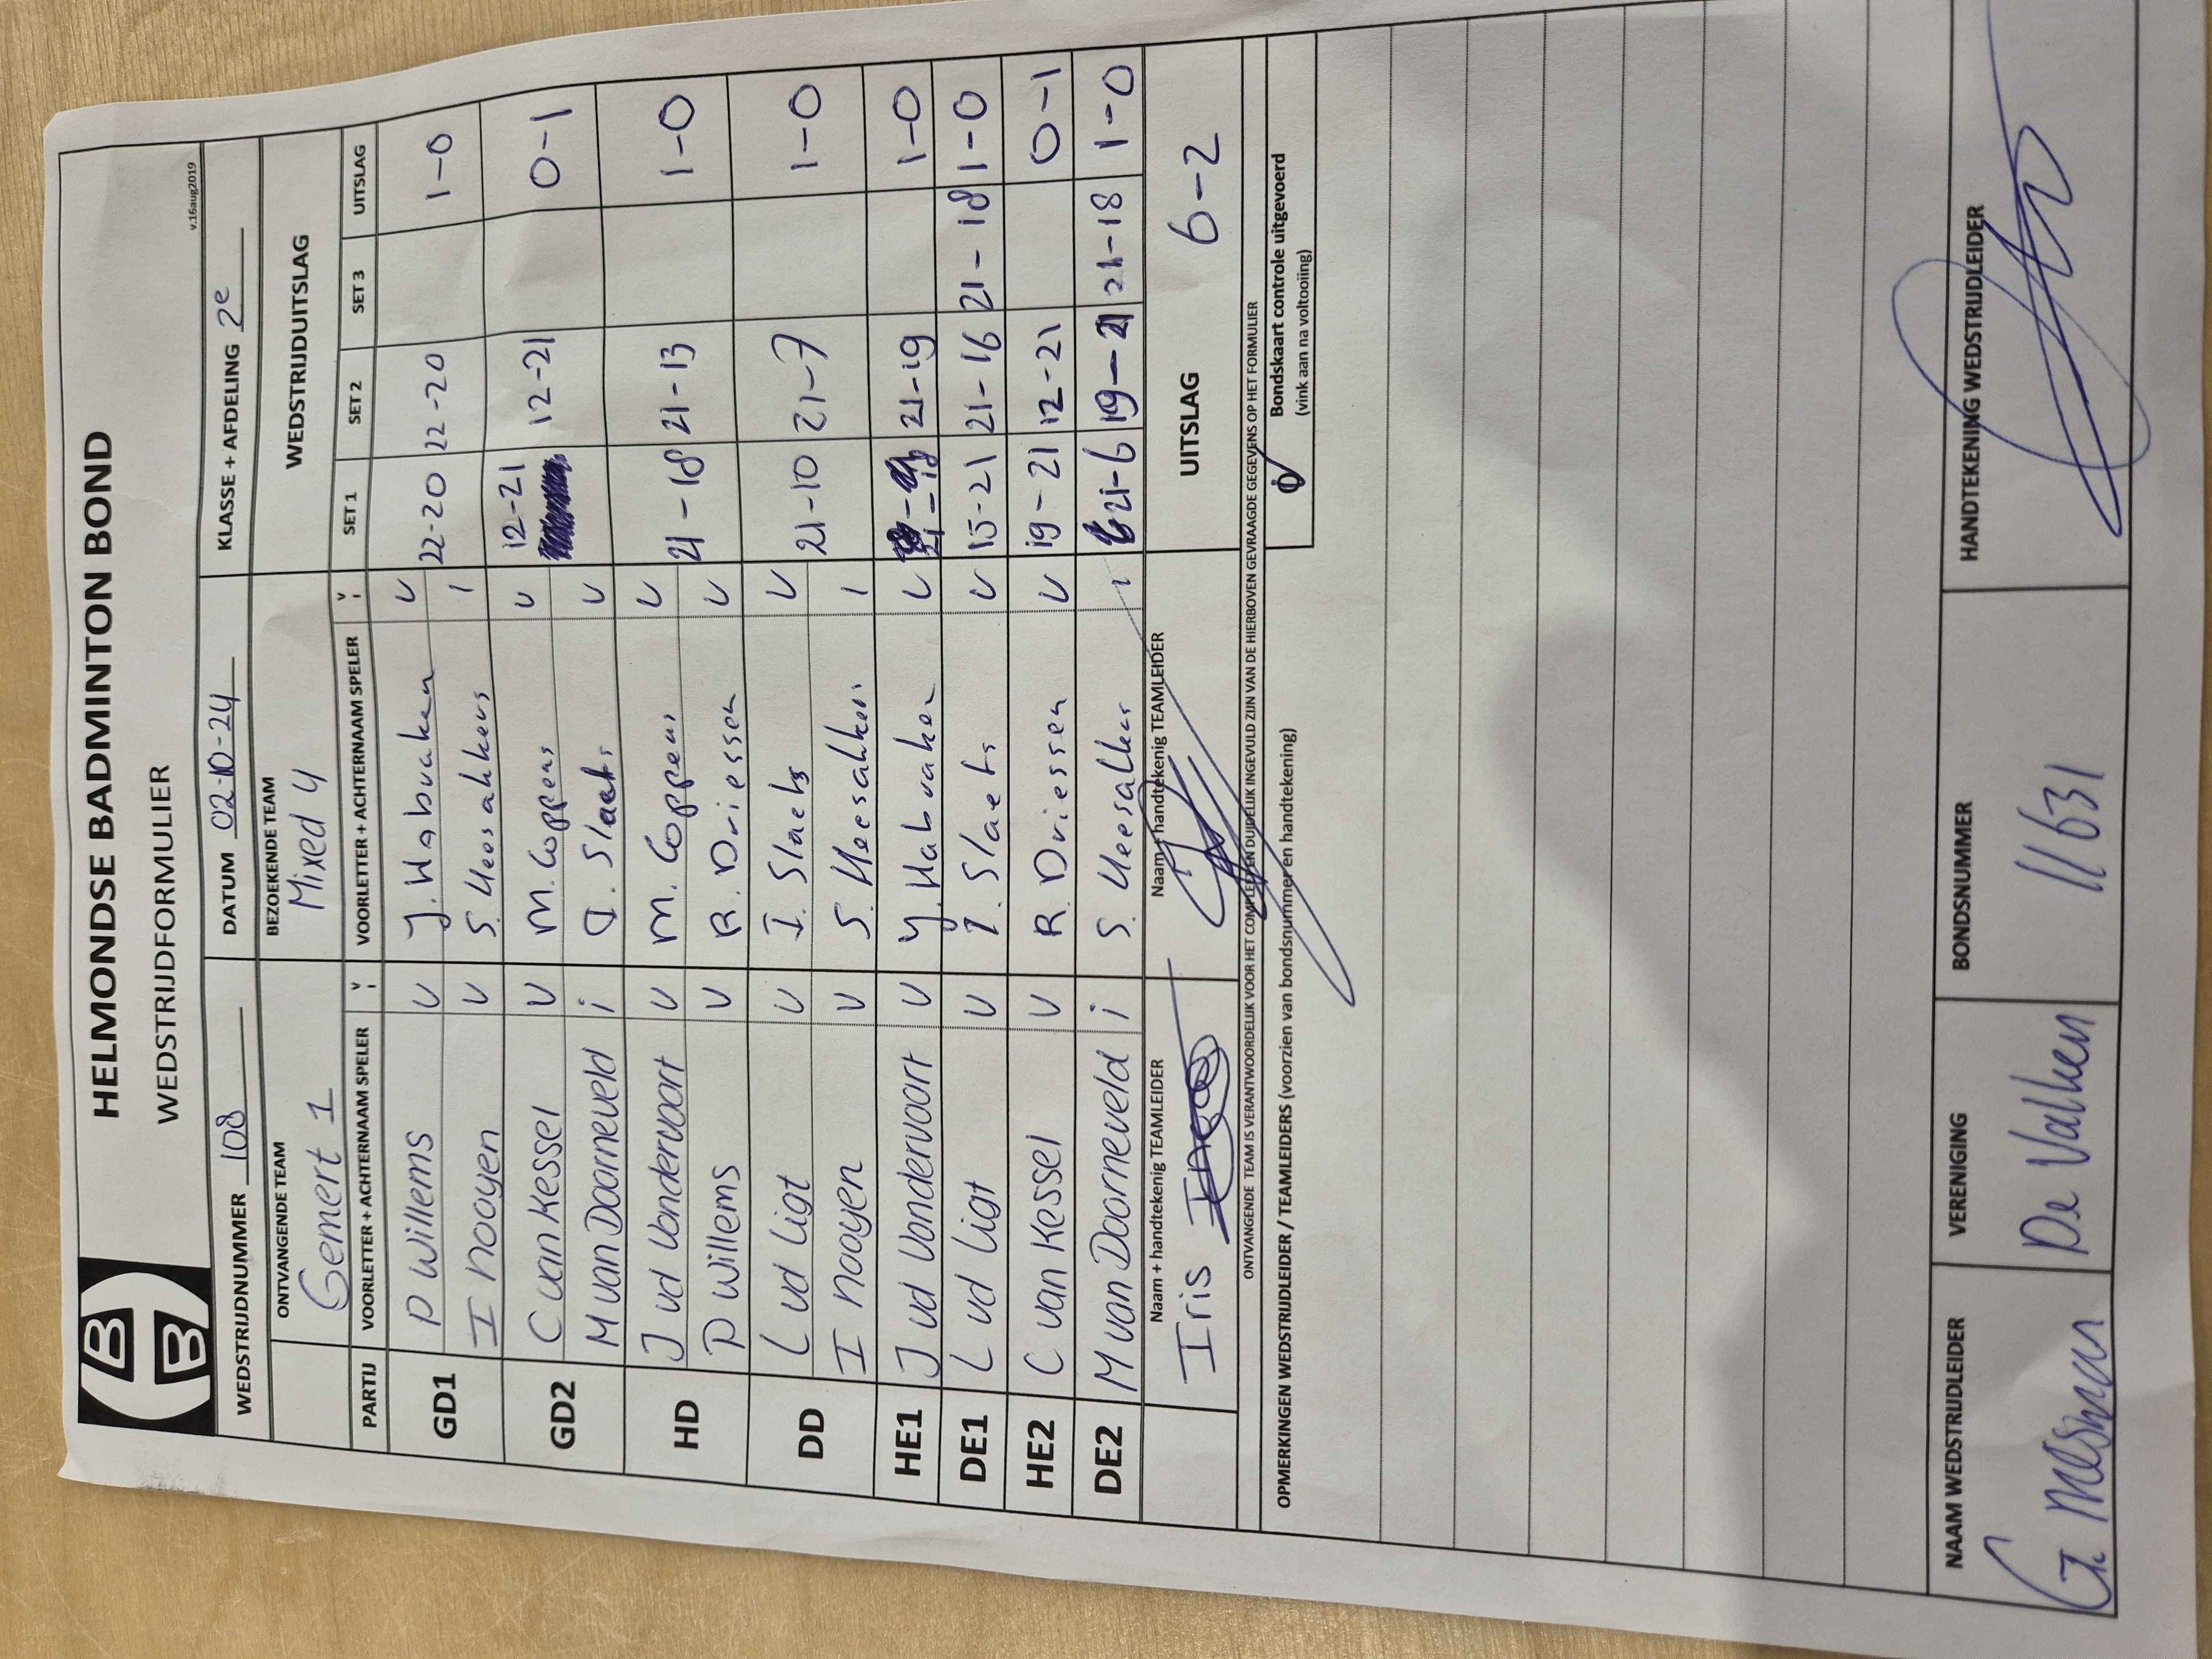 HELMONDSE BADMINTON BOND
WEDSTRIJDFORMULIER
v.16aug2019
WEDSTRIJDNUMMER 108 DATUM 02-10-24 KLASSE + AFDELING 2e
ONTVANGENDE TEAM BEZOEKENDE TEAM WEDSTRIJDUITSLAG
Gemert 1 Mixed 4
PARTIJ VOORLETTER + ACHTERNAAM SPELER V I VOORLETTER + ACHTERNAAM SPELER V I SET 1 SET 2 SET 3 UITSLAG
GD1 P Willems V J. Habraken V 22-20 22-20 1-0
I Nooyen V S. Heesakkers I
GD2 C van Kessel V M. Coppens V 12-21 12-21 0-1
M van Doorneveld i I. Slaets V
HD J vd Vondervoort V M. Coppens V 21-18 21-13 1-0
P Willems V R. Driessen V
DD L vd Ligt V I. Slaets V 21-10 21-7 1-0
I Nooyen V S. Heesakkers I
HE1 J vd Vondervoort V J. Habraken V 21-19 1-0
DE1 L vd Ligt V I. Slaets V 15-21 21-16 21-18 1-0
HE2 C van Kessel V R. Driessen V 19-21 12-21 0-1
DE2 M van Doorneveld i S. Heesakkers i 21-6 19-21 21-18 1-0
Naam + handtekenig TEAMLEIDER Naam + handtekenig TEAMLEIDER UITSLAG 6-2
Iris
ONTVANGENDE TEAM IS VERANTWOORDELIJK VOOR HET COMPLEET EN DUIDELIJK INGEVULD ZIJN VAN DE HIERBOVEN GEVRAAGDE GEGEVENS OP HET FORMULIER
OPMERKINGEN WEDSTRIJDLEIDER / TEAMLEIDERS (voorzien van bondsnummer en handtekening)
Bondskaart controle uitgevoerd
(vink aan na voltooiing)
NAAM WEDSTRIJDLEIDER VERENIGING BONDSNUMMER HANDTEKENING WEDSTRIJDLEIDER
G. Mesman De Valken 11631